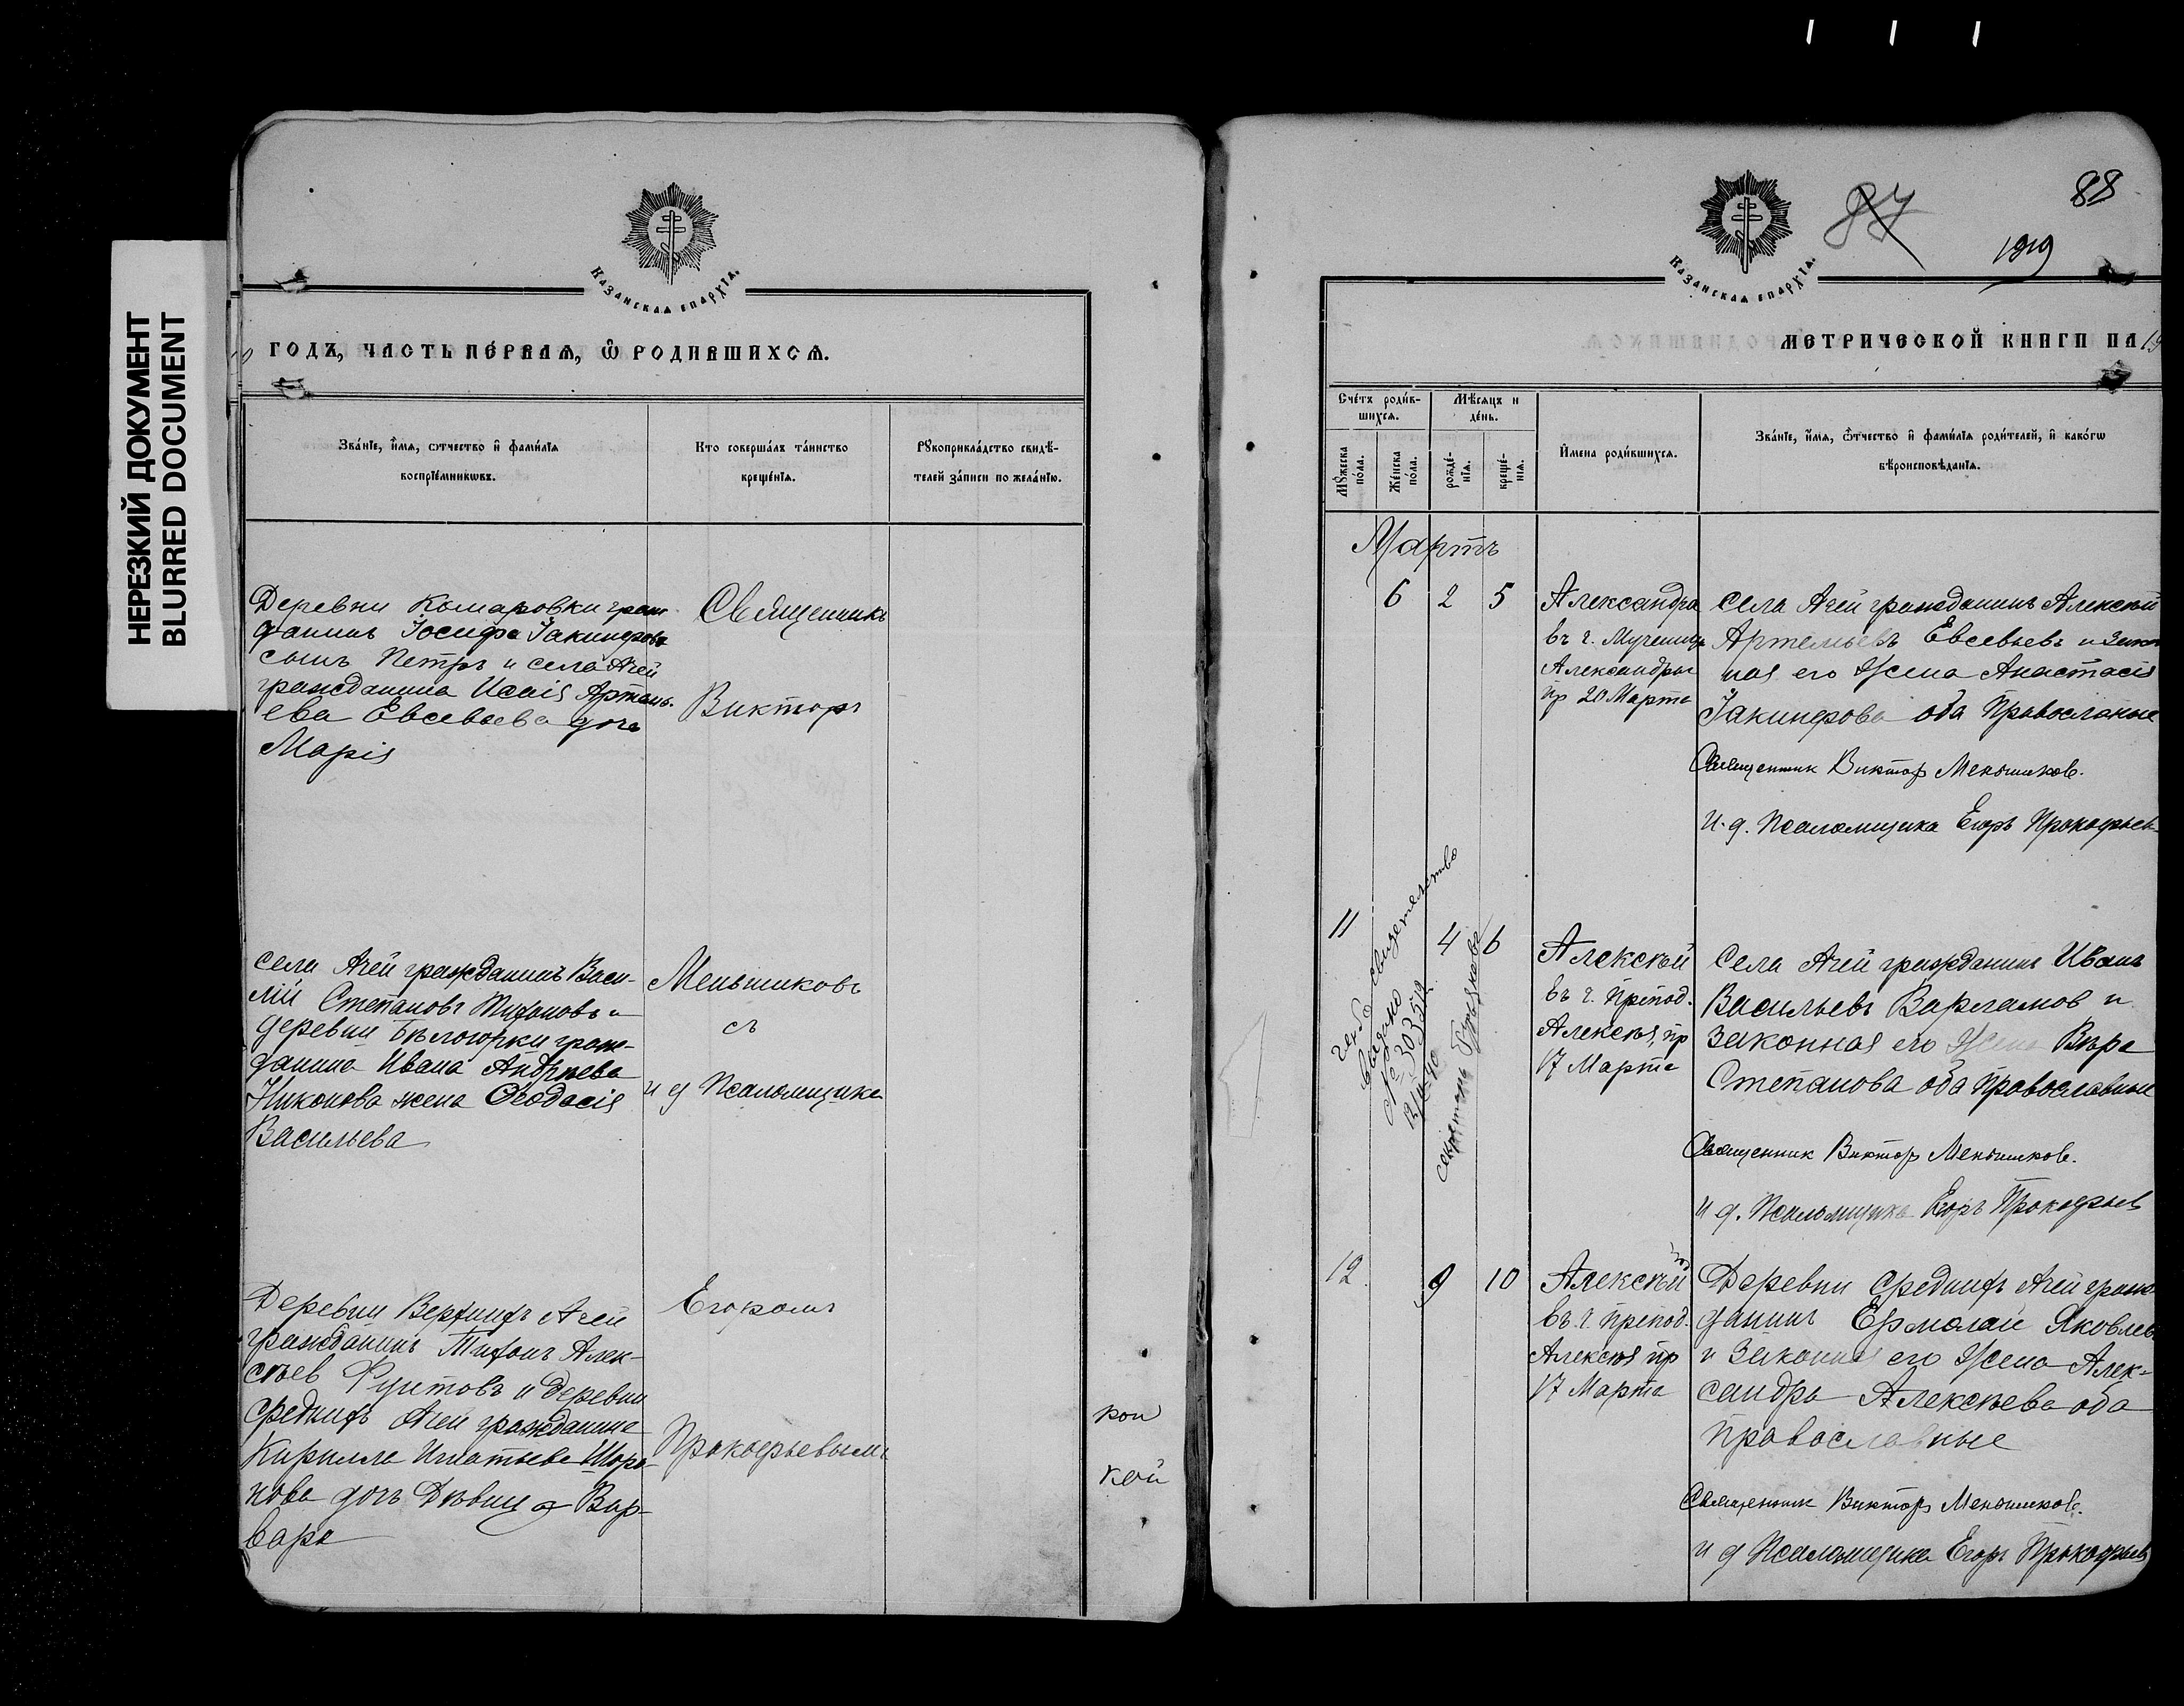 НЕРЕЗКИЙ ДОКУМЕНТ
BLURRED DOCUMENT
Казанская епархїѧ.
годъ, часть пе́рваѧ, ѽ родившихсѧ.
Зва́нїе, и҆́мѧ, ѻтчество и҆ фами́лїѧ
воспрїе́мникѡвъ.
Кто соверша́лъ та́инство
креще́нїѧ.
Рꙋкоприкла́дство свидѣ́-
телей за́писи по жела́нїю.
Деревни Комаровки граж-
данинъ Іосифа Іакинфова
сынъ Петръ и села Ачей
гражданина Исаія Артемь-
ева Евсевьева дочь
Марія
Священникъ
Викторъ
села Ачей гражданинъ Васи-
лій Степановъ Тихоновъ и
деревни Бѣлогорки граж-
данина Ивана Андреева
Никонова жена Ѳеодосія
Васильева
Меньшиковъ
съ
и д Псаломщика
Деревни Верхнихъ Ачей
гражданинъ Тихонъ Алек-
сѣев Фунтовъ и деревни
средних Ачей гражданина
Кирилла Игнатьева Шоро-
кова дочь Дѣвица Вар-
вара
Егоромъ
Прокофьевымъ
кои
кой
Казанская епархїѧ.
87
88
1919
метрической книги на 19
Сче́тъ роди́в-
шихсѧ.
Мѣ́сѧцъ и
де́нь.
Мꙋжеска
по́ла.
Же́нска
по́ла.
рожде́-
нїѧ.
креще́-
нїѧ.
И҆мена роди́вшихсѧ.
Зва́нїе, и҆́мѧ, ѻ҆́тчество и҆ фами́лїѧ роди́телей, и҆ како́гѡ
вѣроисповѣ́данїѧ.
Мартъ
6 2 5
Александра
въ ч. Мученицы
Александры
пр 20 Марта
села Ачей гражданинъ Алексѣй
Артемьевъ Евсевьевъ и закон
ная его Жена Анастасія
Іакинфова оба Православные
Священник Виктор Меньшиков.
И. д. Псаломщика Егоръ Прокофьев
11 4 6
свидетельство
№ 303572
секретарь
Алексѣй
въ ч. Препод.
Алексѣя, пр
17 Марта
Села Ачей гражданинъ Иванъ
Васильевъ Варламов и
законная его Жена Вѣра
Степанова оба Православные
Священник Виктор Меньшиков.
и д. Псаломщика Егоръ Прокофьев
12 9 10
Алексѣй
въ. ч. препод.
Алексѣя пр
17 Марта
Деревни Среднихъ Ачей граж-
данинъ Ермолай Яковлев
и законная его Жена Алек-
сандра Алексѣева оба
православные
Священник Виктор Меньшиков.
и д Псаломщика Егоръ Прокофьев